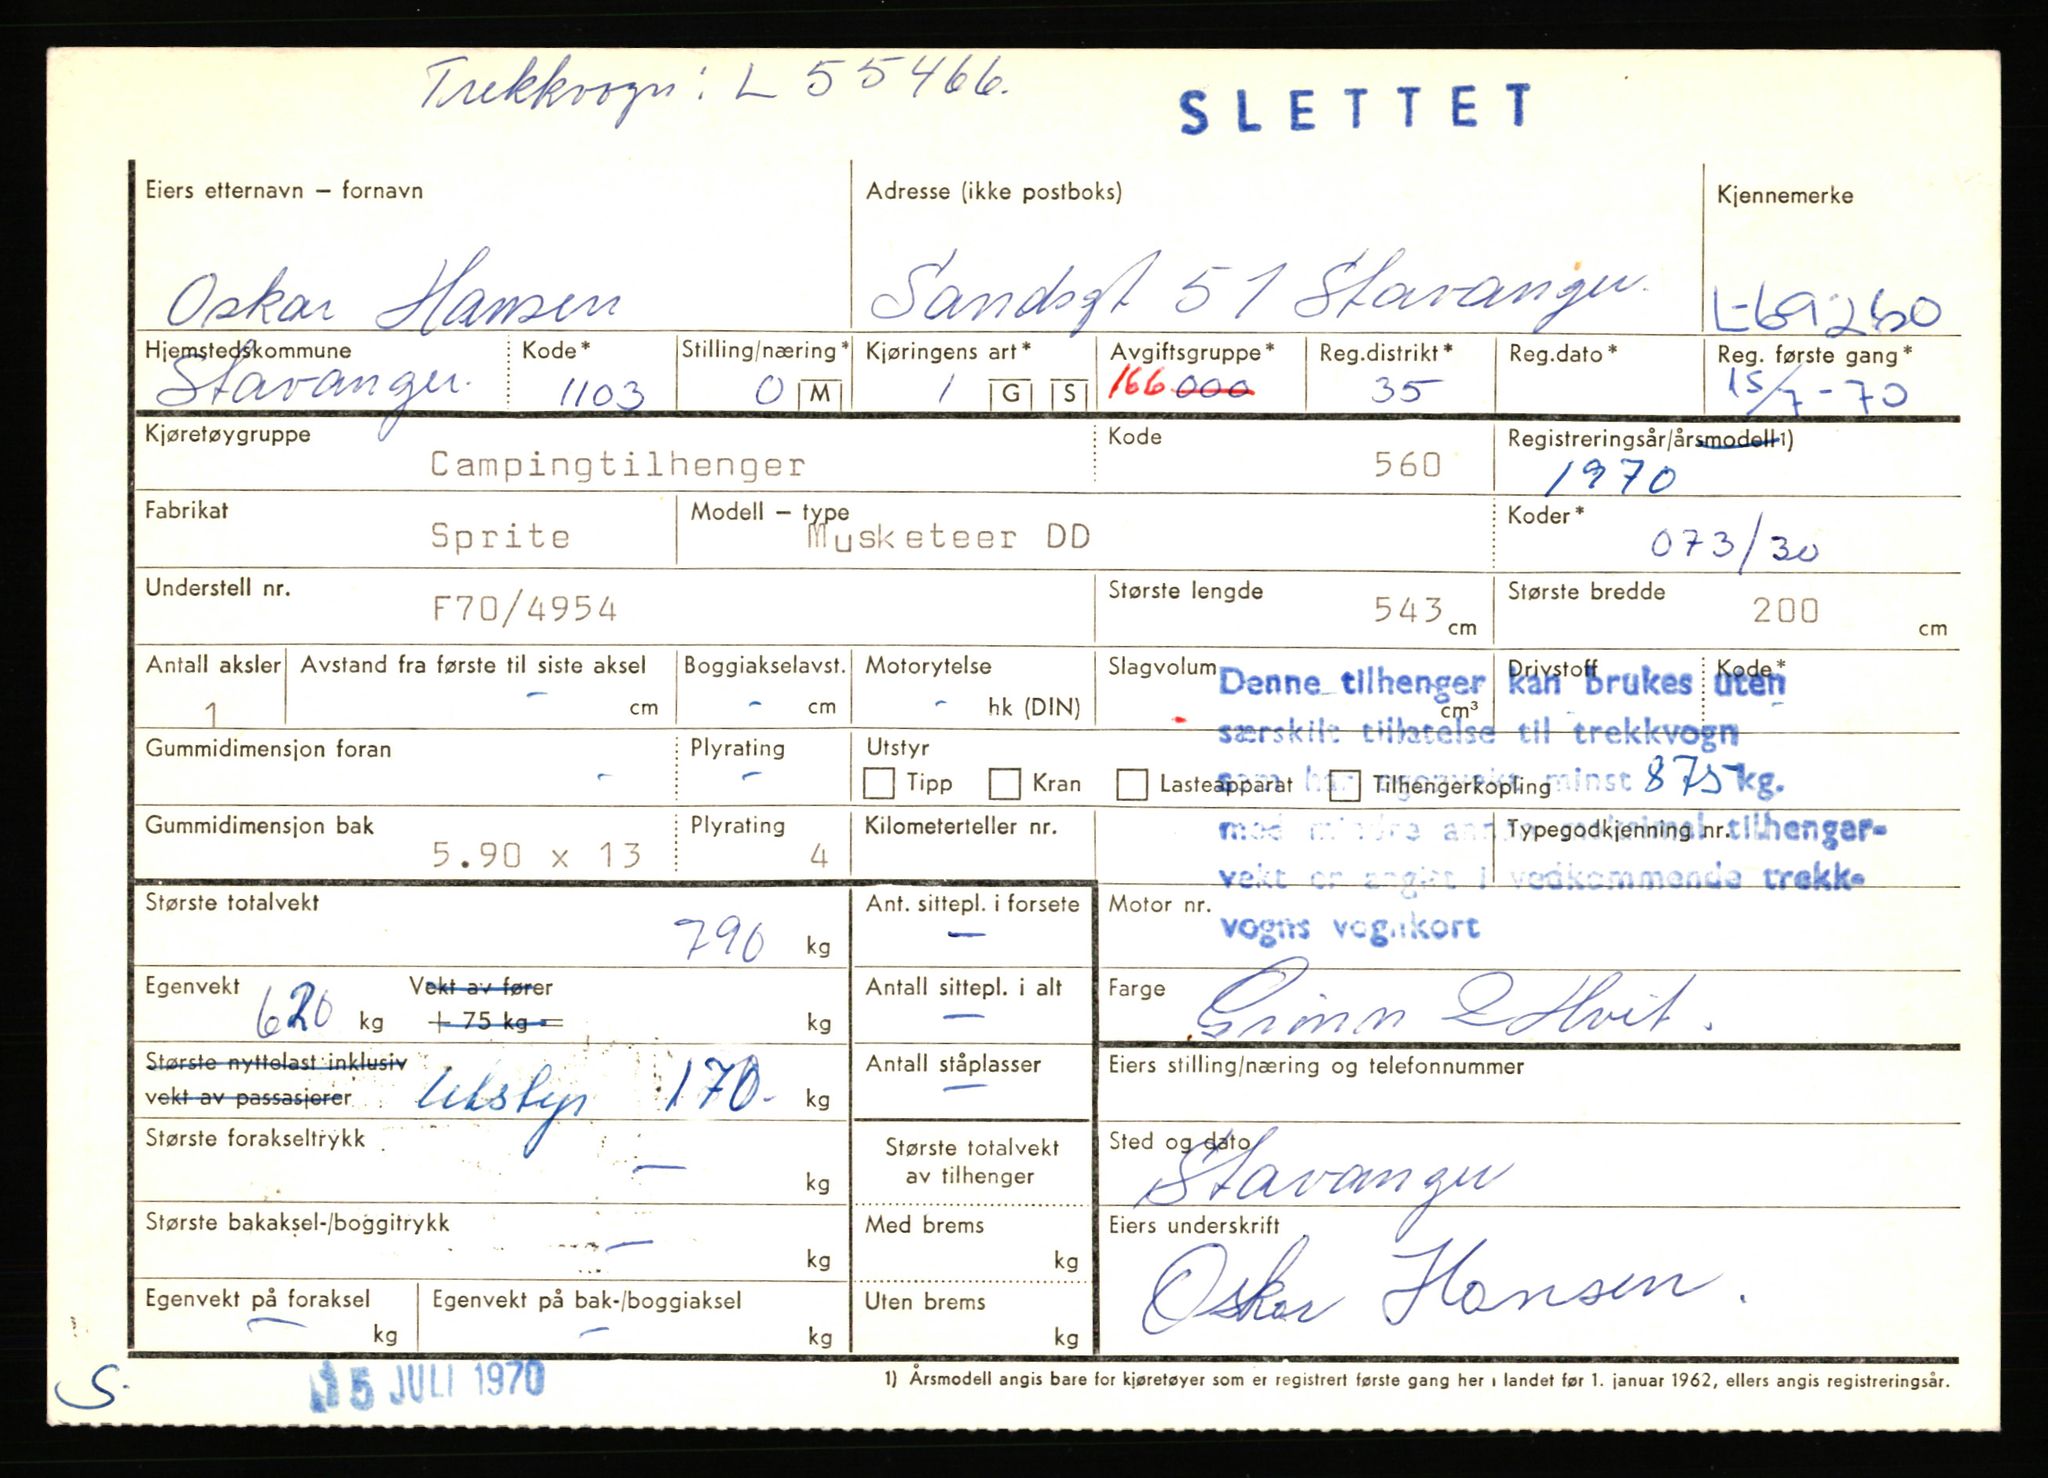 Trekkvogn: L 55466.
SLETTET
Eiers etternavn – fornavn
Adresse (ikke postboks)
Kjennemerke
Oskar Hansen
Sandsgt 51 Stavanger.
L-69260
Hjemstedskommune Kode* Stilling/næring* Kjøringens art* Avgiftsgruppe* Reg.distrikt* Reg.dato* Reg. første gang*
Stavanger. 1103 0 M 1 G S 166 000 35 15/7-70
Kjøretøygruppe Kode Registreringsår/årsmodell 1)
Campingtilhenger 560 1970
Fabrikat Modell – type Koder*
Sprite Musketeer DD 073/30
Understell nr. Største lengde Største bredde
F70/4954 543 cm 200 cm
Antall aksler Avstand fra første til siste aksel Boggiakselavst. Motorytelse Slagvolum Drivstoff Kode*
1 - cm - cm - hk (DIN) cm³ -
Denne tilhenger kan brukes uten
særskilt tillatelse til trekkvogn
som har egenvekt minst 875 kg.
med mindre annen maksimal tilhenger-
vekt er angitt i vedkommende trekk-
vogns vognkort
Gummidimensjon foran Plyrating Utstyr
- - Tipp Kran Lasteapparat Tilhengerkopling
Gummidimensjon bak Plyrating Kilometerteller nr. Typegodkjenning nr.
5.90 x 13 4
Største totalvekt Ant. sittepl. i forsete Motor nr.
790 kg —
Egenvekt Vekt av fører Antall sittepl. i alt Farge
620 kg + 75 kg = kg — Grönn & Hvit.
Største nyttelast inklusiv Antall ståplasser Eiers stilling/næring og telefonnummer
vekt av passasjerer Utstyr 170.- kg —
Største forakseltrykk Største totalvekt Sted og dato
— kg av tilhenger Stavanger
Største bakaksel-/boggitrykk Med brems Eiers underskrift
— kg kg Oskar Hansen.
Egenvekt på foraksel Egenvekt på bak-/boggiaksel Uten brems
— kg — kg kg
S.
15 JULI 1970
1) Årsmodell angis bare for kjøretøyer som er registrert første gang her i landet før 1. januar 1962, ellers angis registreringsår.